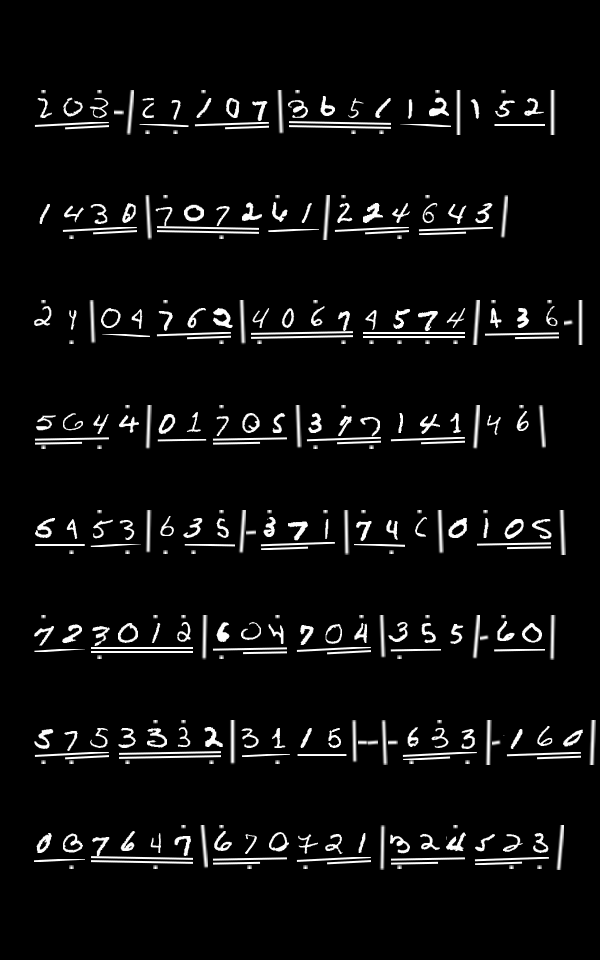 203-|27107|365112|152
1430|707261|224643
24|04762|40674574|436-|
5644|01705|377141|46
5453|635|-371|746|0105|
723012|604704|355|-60|
5753332|3115|--|-633|-160|
037647|670721|324523|